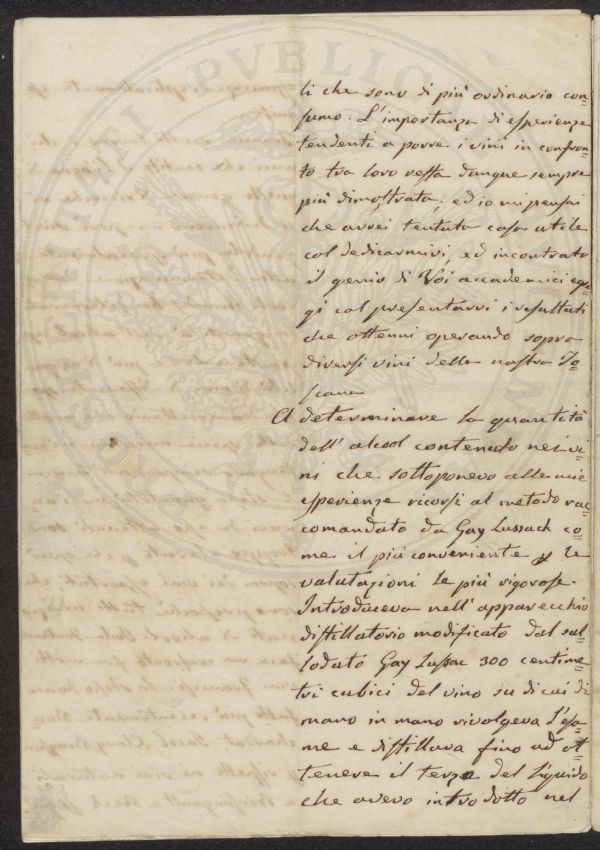 ti che sono di più ordinario con=
sumo. L'importanza di esperienze
tendenti a porre i vini in confron=
to tra loro resta dunque sempre
più dimostrata; ed io mi pensai
che avrei tentata cosa utile
col dedicarmivi, ed incontrato
il genio di Voi accademici egre=
gi col presentarvi i resultati
che ottenni operando sopra
diversi vini della nostra To=
scana
A determinare la quantità
dell'alcool contenuto nei vi=
ni che sottoponevo alle mie
esperienze ricorsi al metodo rac=
comandato da Gay Lussach co=
me il più conveniente p le
valutazioni le più rigorose.
Introduceva nell'apparecchio
distillatorio modificato dal sul=
lodato Gay Lussac 300 centime=
tri cubici del vino su di cui di
mano in mano rivolgeva l'esa=
me e distillava fino ad ot=
tenere il terzo del liquido
che avevo introdotto nel